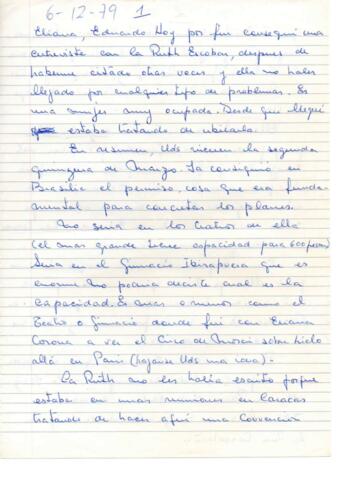 6-12-79 1
Eliana, Eduardo Hoy por fin conseguí una
entrevista con la Ruth Escobar, despues de
haberme citado otras veces, y ella no haber
llegado por cualquier tipo de problemas. Es
una mujer muy ocupada. Desde que llegué
estaba tratando de ubicarla.
En resumen, Uds vienen la segunda
quincena de Marzo. Ya consiguió en
Brasilia el permiso, cosa que era funda-
mental para concretar los planes.
No sería en los teatros de ella
(el mas grande tiene capacidad para 600 person)
Sería en el Gimnacio Ibirapuera que es
enorme No podria decirte cual es la
capacidad. Es mas o menos como el
Teatro o Gimnacio donde fui con Eliana
Corona a ver el Circo de Moscú sobre hielo
allá en Paris (haganse Uds una idea).
La Ruth no les había escrito porque
estaba en unas reuniones en Caracas
tratando de hacer aquí una Convención